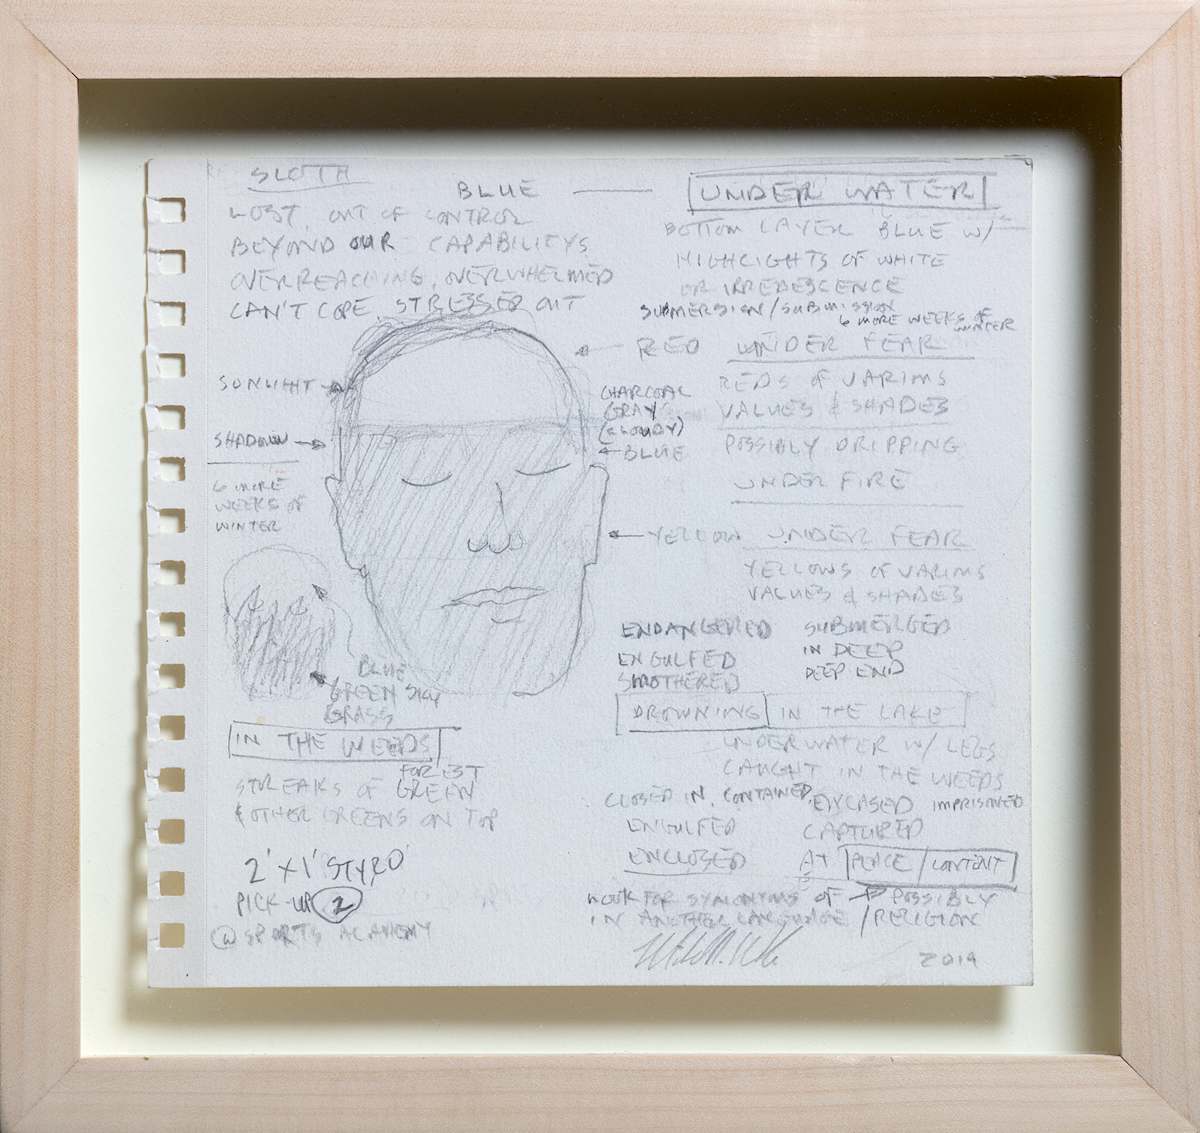 SLOTH
BLUE
UNDER WATER
LOST, OUT OF CONTROL
BEYOND OUR CAPABILITYS
OVERREACHING, OVERWHELMED
CAN'T COPE, STRESSED OUT
BOTTOM LAYER BLUE W/
HIGHLIGHTS OF WHITE
OR IRREDESCENCE
SUBMERSION/SUBMISSION
6 MORE WEEKS OF
WINTER
RED UNDER FEAR
REDS OF VARIMS
VALUES & SHADES
POSSIBLY DRIPPING
UNDER FIRE
SUNLIHT
SHADOW
6 MORE
WEEKS OF
WINTER
CHARCOAL
GRAY
(CLOUDY)
BLUE
YELLOW UNDER FEAR
YELLOWS OF VARIMS
VALUES & SHADES
ENDANGERED SUBMERGED
ENGULFED IN DEEP
SMOTHERED DEEP END
DROWNING IN THE LAKE
UNDERWATER W/ LEGS
CAUGHT IN THE WEEDS
BLUE
GREEN SKY
GRASS
IN THE WEEDS
FOREST
STREAKS OF GREEN
& OTHER GREENS ON TOP
CLOSED IN, CONTAINED, ENCASED IMPRISONED
ENGULFED CAPTURED
ENCLOSED AT PEACE/CONTENT
2' X 1' STYRO
PICK-UP 2
@ SPORTS ACADEMY
LOOK FOR SYNONYMS OF POSSIBLY
IN ANOTHER LANGUAGE/RELIGION
2019